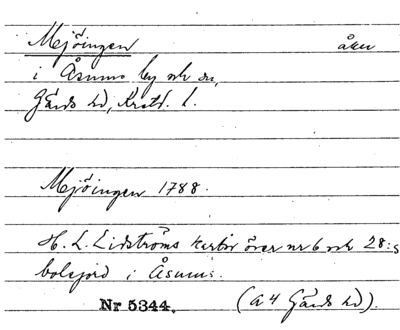 Mjöingen åker
i Åsums by och sn,
Gärds hd, Krstd. l.
Mjöingen 1788.
H. L. Lidströms kartor över nr 6 och 28:s
bolsjord i Åsums.
Nr 5344. (A 4 Gärds hd).